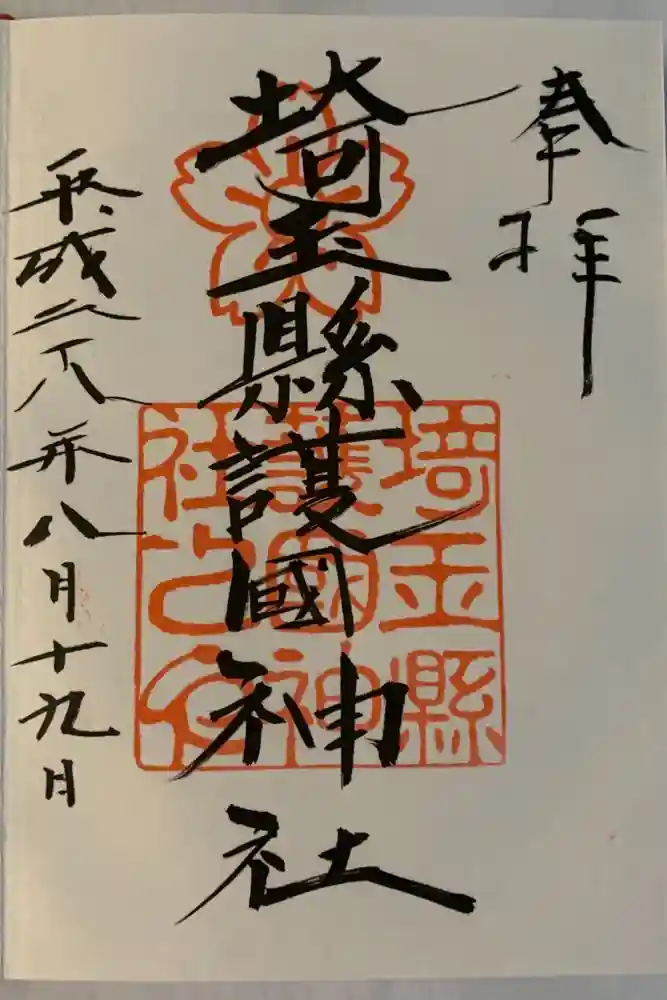 奉拝
埼玉縣護國神社
平成二十八年八月十九日
埼玉縣
護國神
社公印